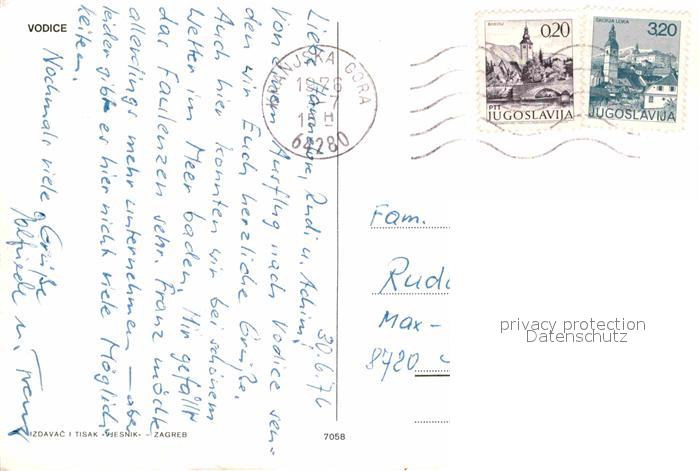 VODICE
30.6.76
Liebe Hannelore, Rudi u. Achim!
Von einem Ausflug nach Vodice sen-
den wir Euch herzliche Grüße.
Auch hier konnten wir bei schönem
Wetter im Meer baden. Mir gefällt
das Faulenzen sehr. Franz möchte
allerdings mehr unternehmen – aber
leider gibt es hier nicht viele Möglich-
keiten.
Nochmals viele Grüße
u. Franz
KRANJSKA GORA
1976
64280
0,20
PTT
JUGOSLAVIJA
ŠKOFJA LOKA
3,20
JUGOSLAVIJA
Fam.
Max-
8720
privacy protection
Datenschutz
IZDAVAČ I TISAK »VJESNIK« – ZAGREB
7058